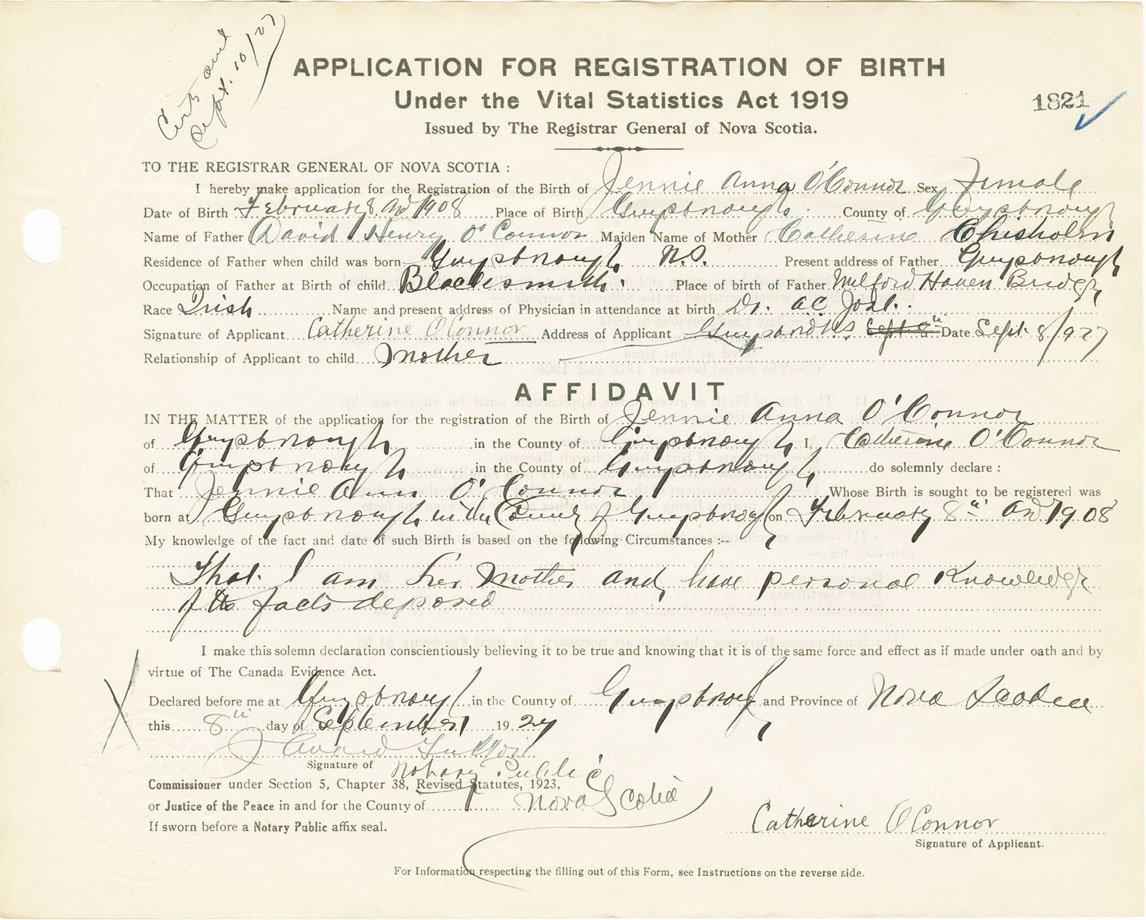 Certs and
Sept. 10/27
APPLICATION FOR REGISTRATION OF BIRTH
Under the Vital Statistics Act 1919
1821
Issued by The Registrar General of Nova Scotia.
TO THE REGISTRAR GENERAL OF NOVA SCOTIA :
I hereby make application for the Registration of the Birth of Jennie Anna O'Connor Sex Female
Date of Birth February 8 AD 1908 Place of Birth Guysborough County of Guysborough
Name of Father David Henry O'Connor Maiden Name of Mother Catherine Chisholm
Residence of Father when child was born Guysborough N.S. Present address of Father Guysborough
Occupation of Father at Birth of child Blacksmith. Place of birth of Father Milford Haven Bridge
Race Irish Name and present address of Physician in attendance at birth Dr. A.C. Jost.
Signature of Applicant Catherine O'Connor Address of Applicant Guysboro N.S. Sept 8th Date Sept. 8/927
Relationship of Applicant to child Mother
AFFIDAVIT
IN THE MATTER of the application for the registration of the Birth of Jennie Anna O'Connor
of Guysborough in the County of Guysborough I, Catherine O'Connor
of Guysborough in the County of Guysborough do solemnly declare :
That Jennie Ann O'Connor Whose Birth is sought to be registered was
born at Guysborough in the County of Guysborough on February 8th AD 1908
My knowledge of the fact and date of such Birth is based on the following Circumstances :--
That I am her Mother and have personal knowledge
of the facts deposed
I make this solemn declaration conscientiously believing it to be true and knowing that it is of the same force and effect as if made under oath and by
virtue of The Canada Evidence Act.
Declared before me at Guysborough in the County of Guysboro and Province of Nova Scotia
this 8th day of September 1927
Signature of Notary Public
Commissioner under Section 5, Chapter 38, Revised Statutes, 1923,
or Justice of the Peace in and for the County of Nova Scotia
If sworn before a Notary Public affix seal.
Catherine O'Connor
Signature of Applicant.
For Information respecting the filling out of this Form, see Instructions on the reverse side.